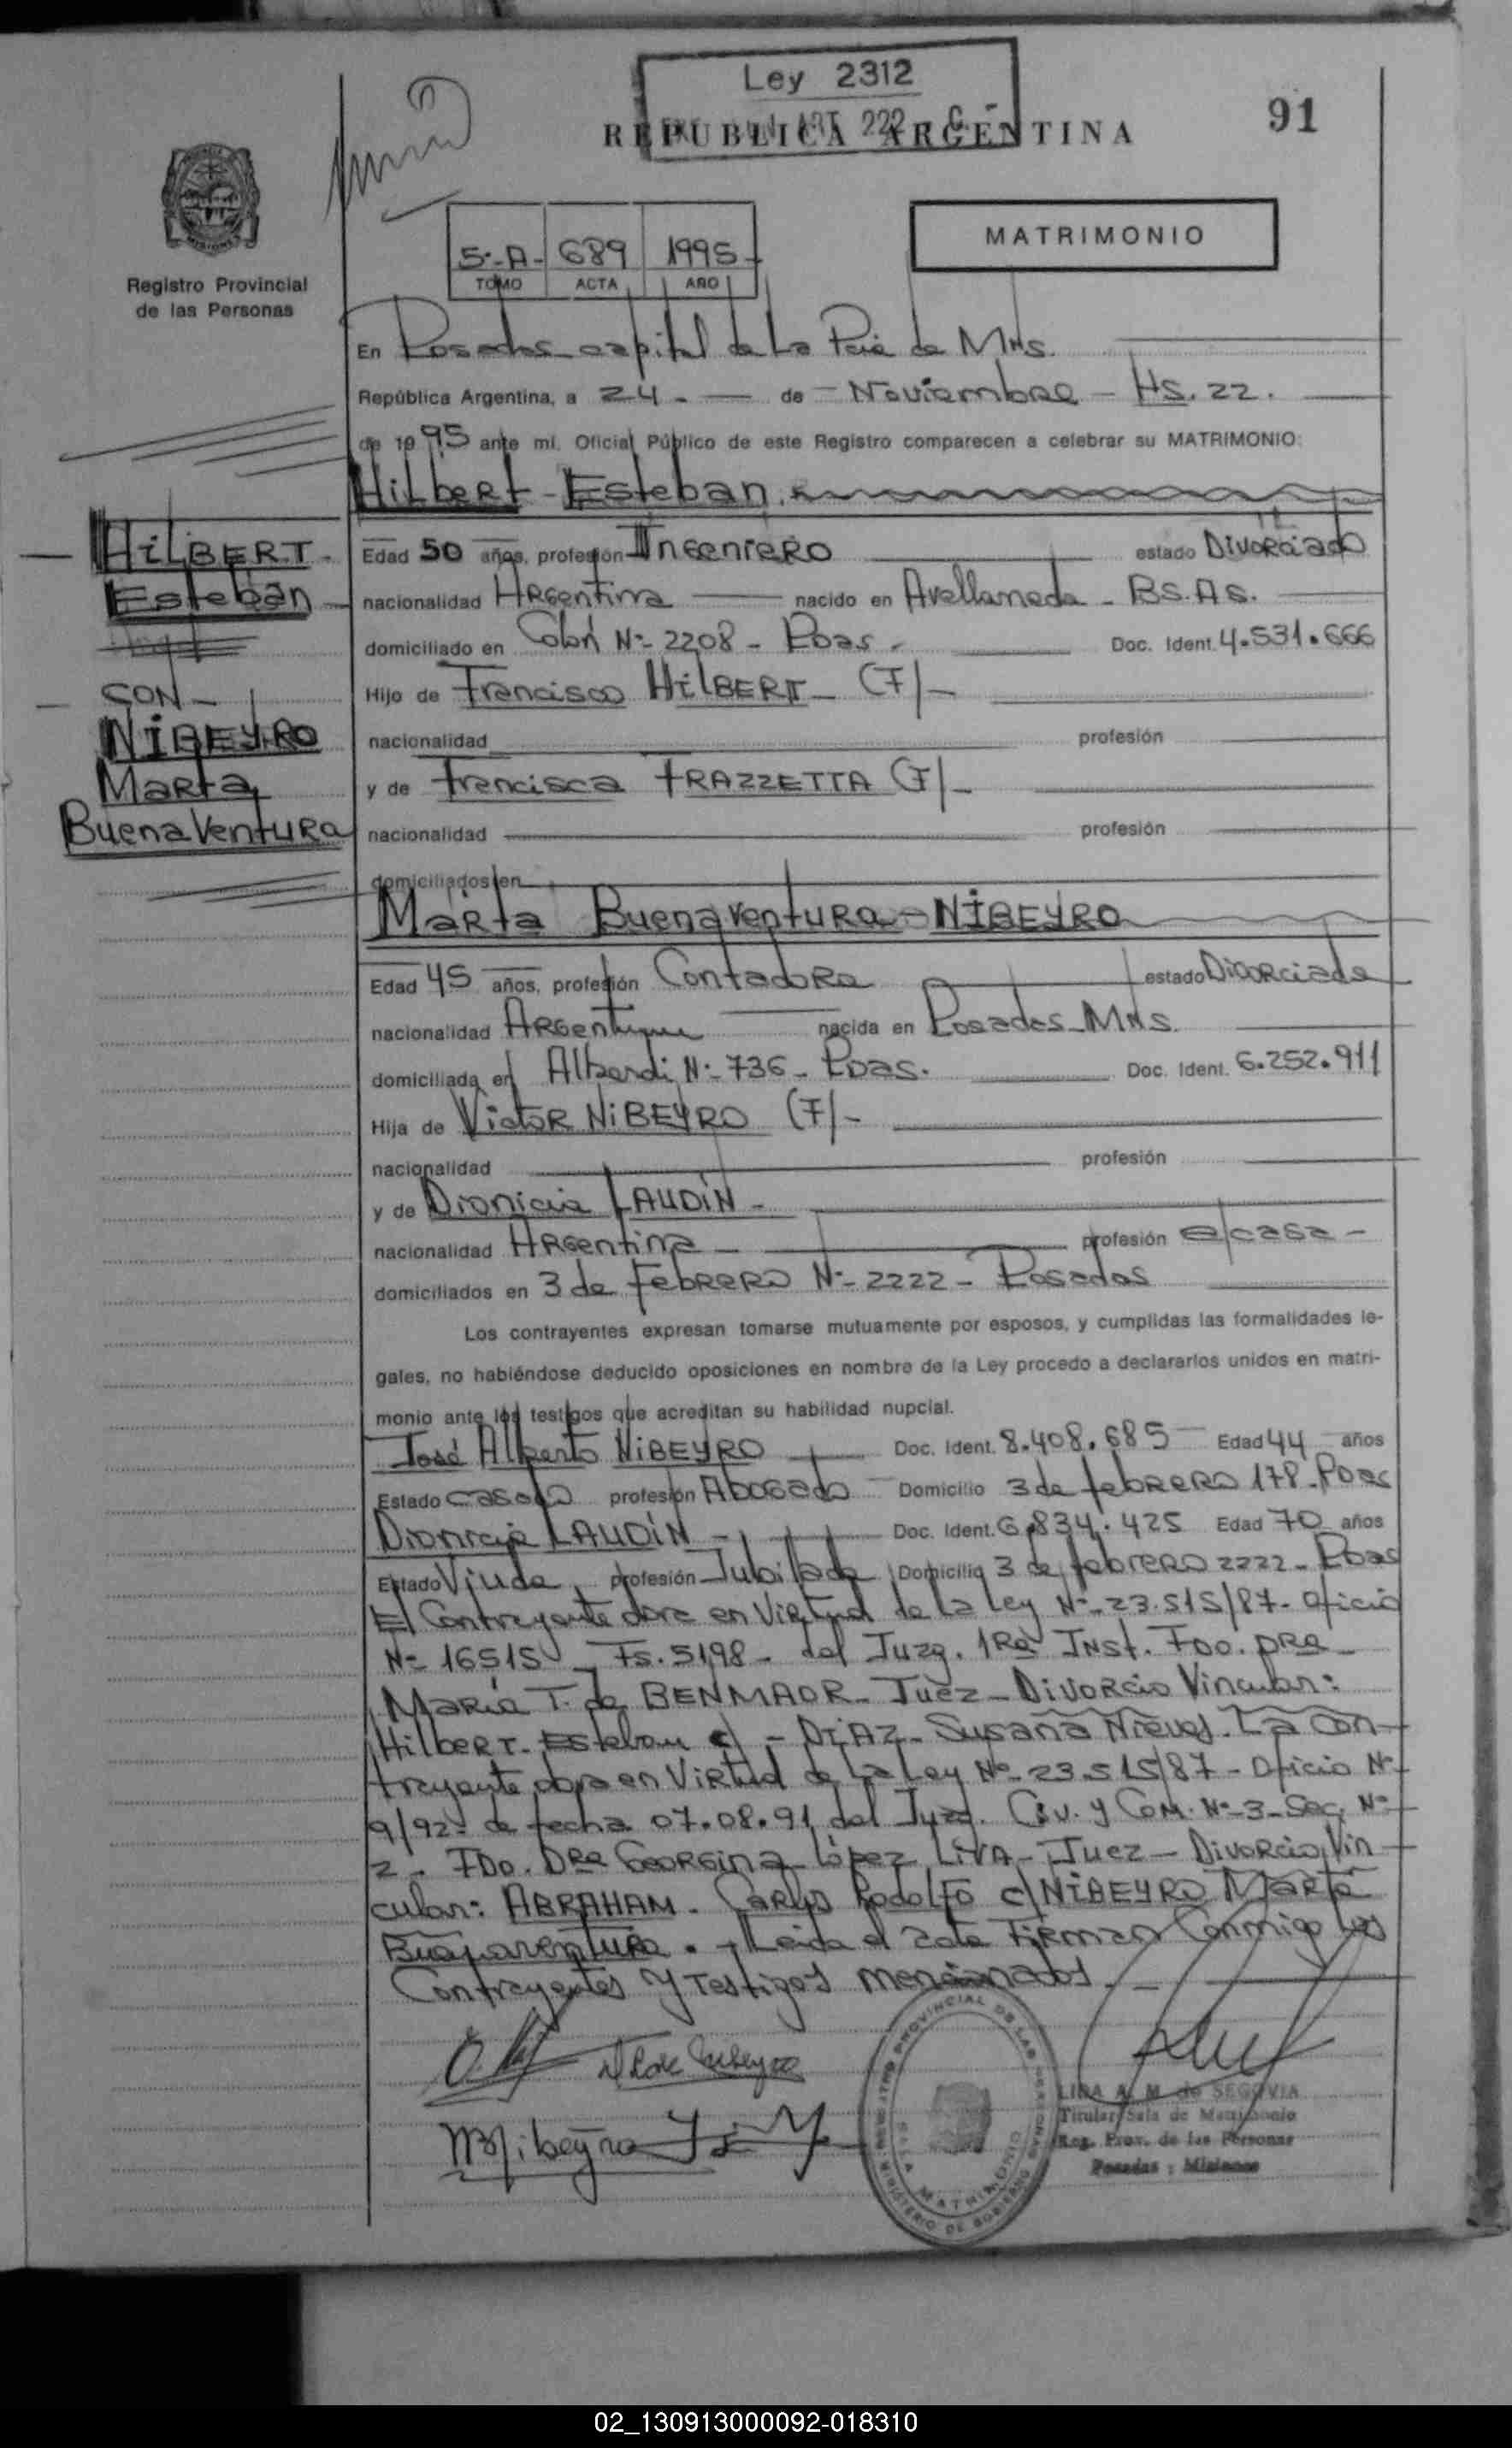 Ley 2312
REPUBLICA ARGENTINA
91
MISIONES
Registro Provincial
de las Personas
5-A- 689 1995-
TOMO ACTA AÑO
MATRIMONIO
En Posadas capital de La Pcia de Mns.
República Argentina, a 24 - de - Noviembre - Hs. 22.
de 1995 ante mi, Oficial Público de este Registro comparecen a celebrar su MATRIMONIO:
Hilbert - Esteban
HilBERT -
Esteban
CON -
NiBEYRO
Marta
Buenaventura
Edad 50 años, profesión Ingeniero estado Divorciado
nacionalidad Argentina nacido en Avellaneda - Bs.As.
domiciliado en Colón N:- 2208 - Pdas - Doc. Ident. 4.531.666
Hijo de Francisco HilBERT - (F)-
nacionalidad profesión
y de Francisca FRAZZETTA (F)-
nacionalidad profesión
domiciliados en
Marta Buenaventura - NiBEYRO
Edad 45 años, profesión Contadora estado Divorciada
nacionalidad Argentina nacida en Posadas - Mns.
domiciliada en Alberdi N:- 736 - Pdas. Doc. Ident. 6.252.911
Hija de Victor NiBEYRO (F)-
nacionalidad profesión
y de Dionicia LAUDiN -
nacionalidad Argentina - profesión a/casa -
domiciliados en 3 de Febrero N:- 2222 - Posadas
Los contrayentes expresan tomarse mutuamente por esposos, y cumplidas las formalidades le-
gales, no habiéndose deducido oposiciones en nombre de la Ley procedo a declararlos unidos en matri-
monio ante los testigos que acreditan su habilidad nupcial.
José Alberto NiBEYRO Doc. Ident. 8.408.685 Edad 44 años
Estado casado profesión Abogado Domicilio 3 de febrero 178 - Pdas
Dionicia LAUDiN - Doc. Ident. 6.834.425 Edad 70 años
Estado Viuda, profesión Jubilada Domicilio 3 de febrero 2222 - Pdas
El Contrayente obra en Virtud de la Ley N:- 23.515/87 - Oficio
N:- 16515 - Fs. 5198 - del Juzg. 1Ra Inst. Fdo. DRa -
María T. de BENMAOR - Juèz - Divorcio Vincular:
Hilbert - Esteban c/ - DiAZ - Susana Nieves. La Con-
trayente obra en Virtud de la Ley N:- 23.515/87 - Oficio N:-
9/92- de fecha 07.08.91 del Juzg. Civ. y Com. N:- 3 - Sec. N:-
2 - Fdo. DRa Georgina López Liva - Juez - Divorcio Vin
cular: ABRAHAM - Carlos Rodolfo c/ NiBEYRO Marta
Buenaventura. - Leída el acta Firman Conmigo los
Contrayentes y Testigos mencionados. -
M Nibeyro
LIDA A. M. de SEGOVIA
Titular Sala de Matrimonio
Reg. Prov. de las Personas
Posadas : Misiones
REGISTRO PROVINCIAL DE LAS PERSONAS
MINISTERIO DE GOBIERNO
SALA MATRIMONIO
02_130913000092-018310